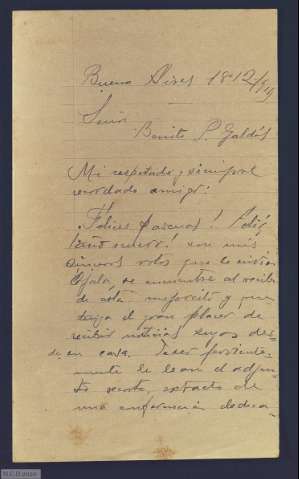 Buenos Aires 18-12/919
Señor
Benito P. Galdós
Mi respetado y siempre
recordado amigo:
¡Felices Pascuas! ¡Feliz
año nuevo! son mis
sinceros votos que le envio
Ojalá, se encuentre al recibo
de esta mejorcito y que
tenga el gran placer de
recibir noticias suyas des-
de, en casa.
mente le lean el adjun-
to recorte, extracto de
una conferencia dedica-